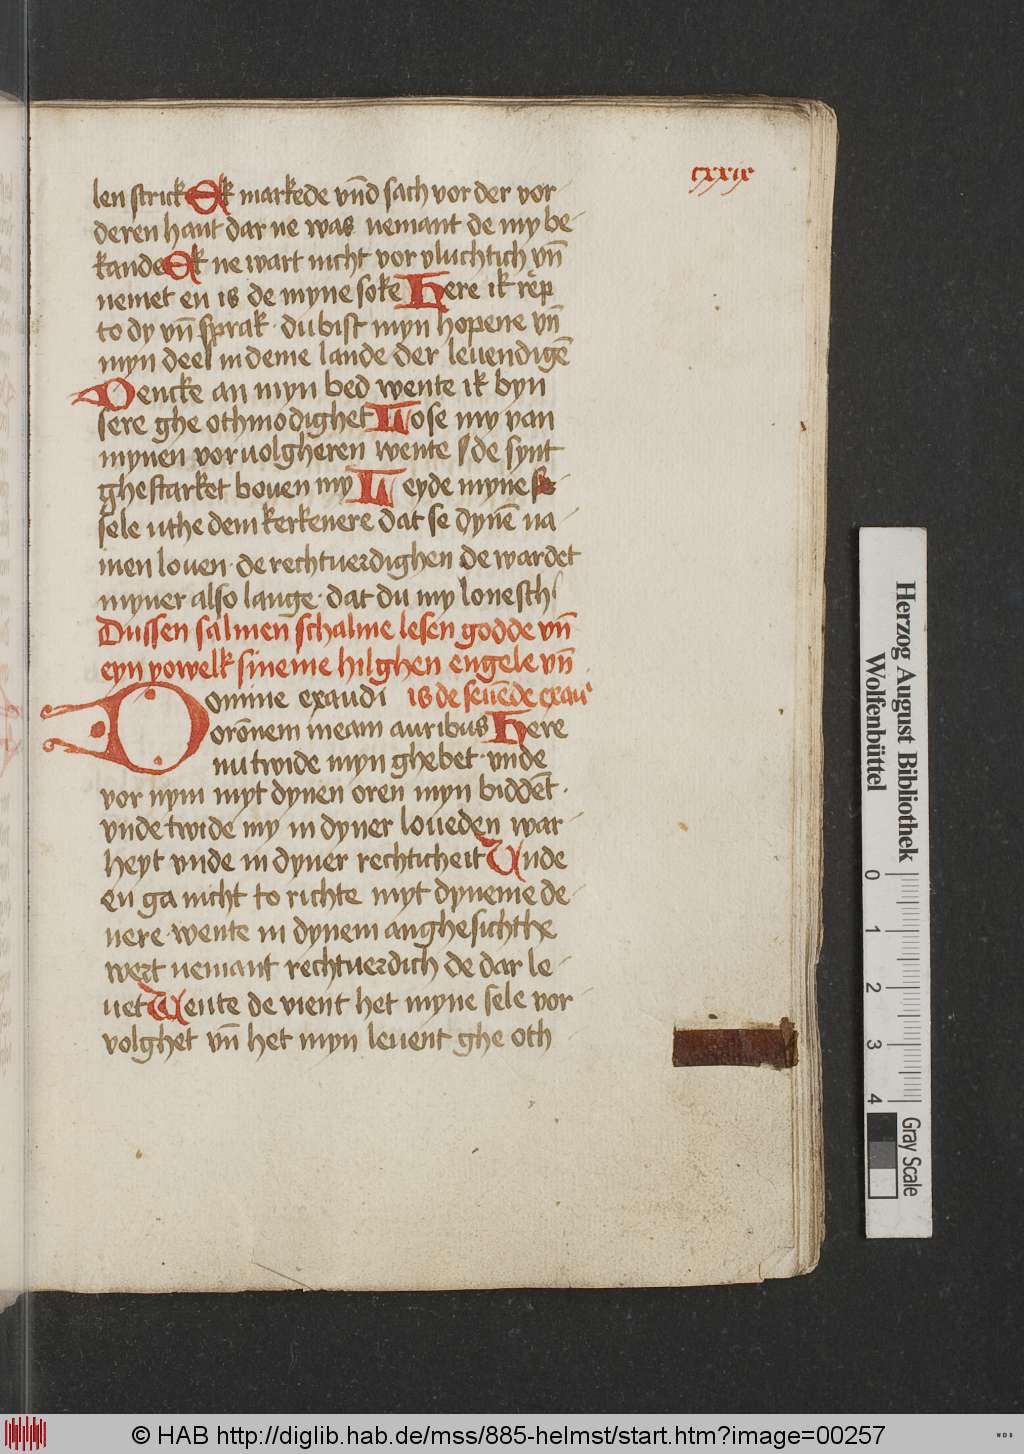 cxxix
len strick Ek markede vn̄d sach vor der vor
deren hant dar ne was nemant de my be
kande Ek ne wart nicht vor vluchtich vn̄
nemet en is de myne soke Here ik rep
to dy vn̄ sprak · du bist myn hopene vn̄
myn deel in deme lande der leuendigē
Dencke an myn bed wente ik byn
sere ghe othmodighet Lose my van
mynen voruolgheren wente se de synt
ghestarket bouen my Leyde myne se
sele uthe dem kerkenere dat se dynē na
men louen · de rechtuerdighen de wardet
myner also lange · dat du my lonesth
Dussen salmen schalme lesen godde vn̄
eyn yowelk sineme hilghen engele vn̄
Domine exaudi is de seuēde exau
orōnem meam auribus Here
nu twide myn ghebet · vnde
vor nym myt dynen oren myn biddēt ·
vnde twide my in dyner loueden war
heyt vnde in dyner rechticheit Vnde
en ga nicht to richte myt dyneme de
nere · wente in dynem anghesichthe
wert nemant rechtuerdich de dar le
uet Wente de vient het myne sele vor
volghet vn̄ het myn leuent ghe oth
Herzog August Bibliothek
Wolfenbüttel
0 1 2 3 4
Gray Scale
© HAB http://diglib.hab.de/mss/885-helmst/start.htm?image=00257